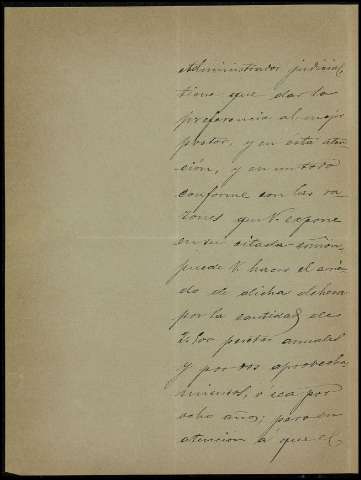 Administrador judicial
tiene que dar la
preferencia al mejor
postor, y en esta aten-
ción, y en un todo
conforme con las ra-
zones que V. expone
en su citada
puede V. hacer el arrien-
do de dicha dehesa
por la cantidad de
pesetas anuales
y por sus aprovecha-
mientos, ó sea por
ocho años; pero en
atencion á que el